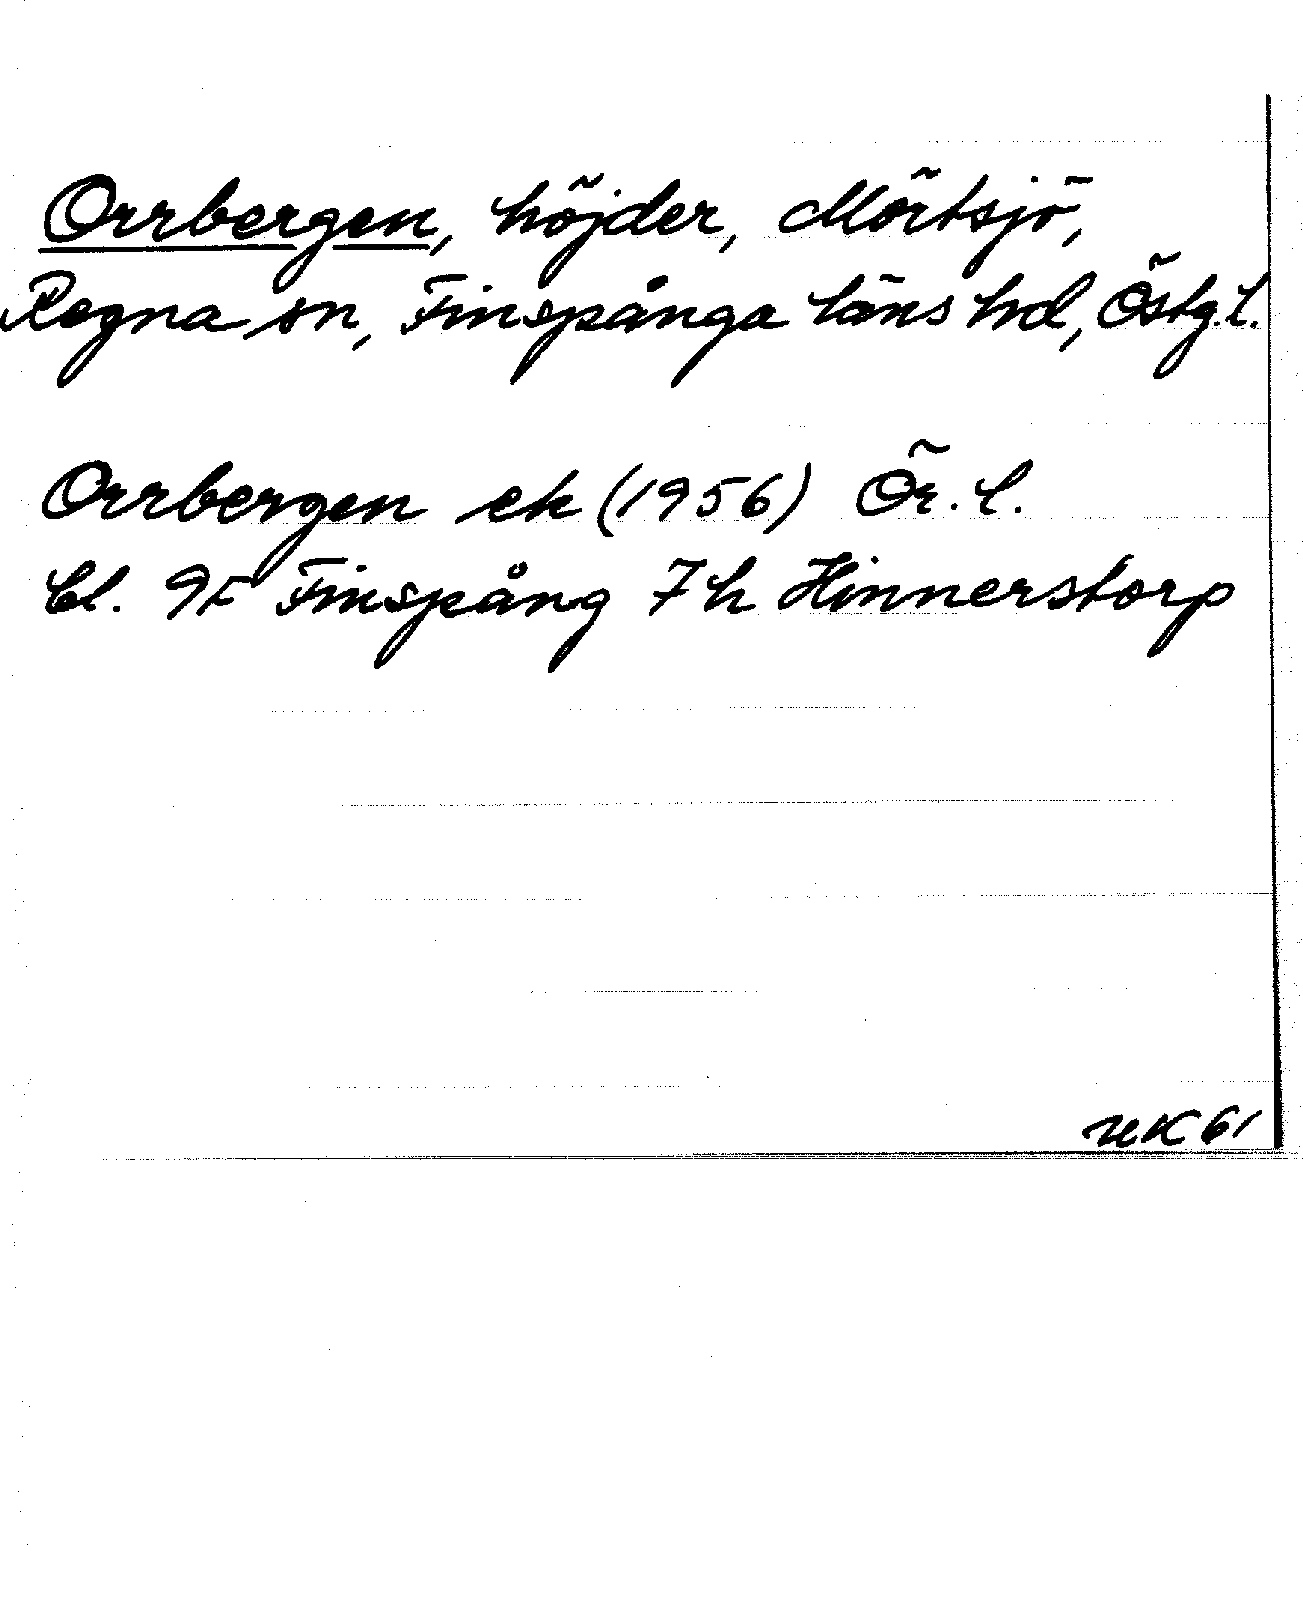 Orrbergen, höjder, Mörtsjö,
Regna sn, Finspånga läns hd, Östg.l.
Orrbergen ek (1956) Ör. l.
bl. 9F Finspång 7h Hinnerstorp
HK 61